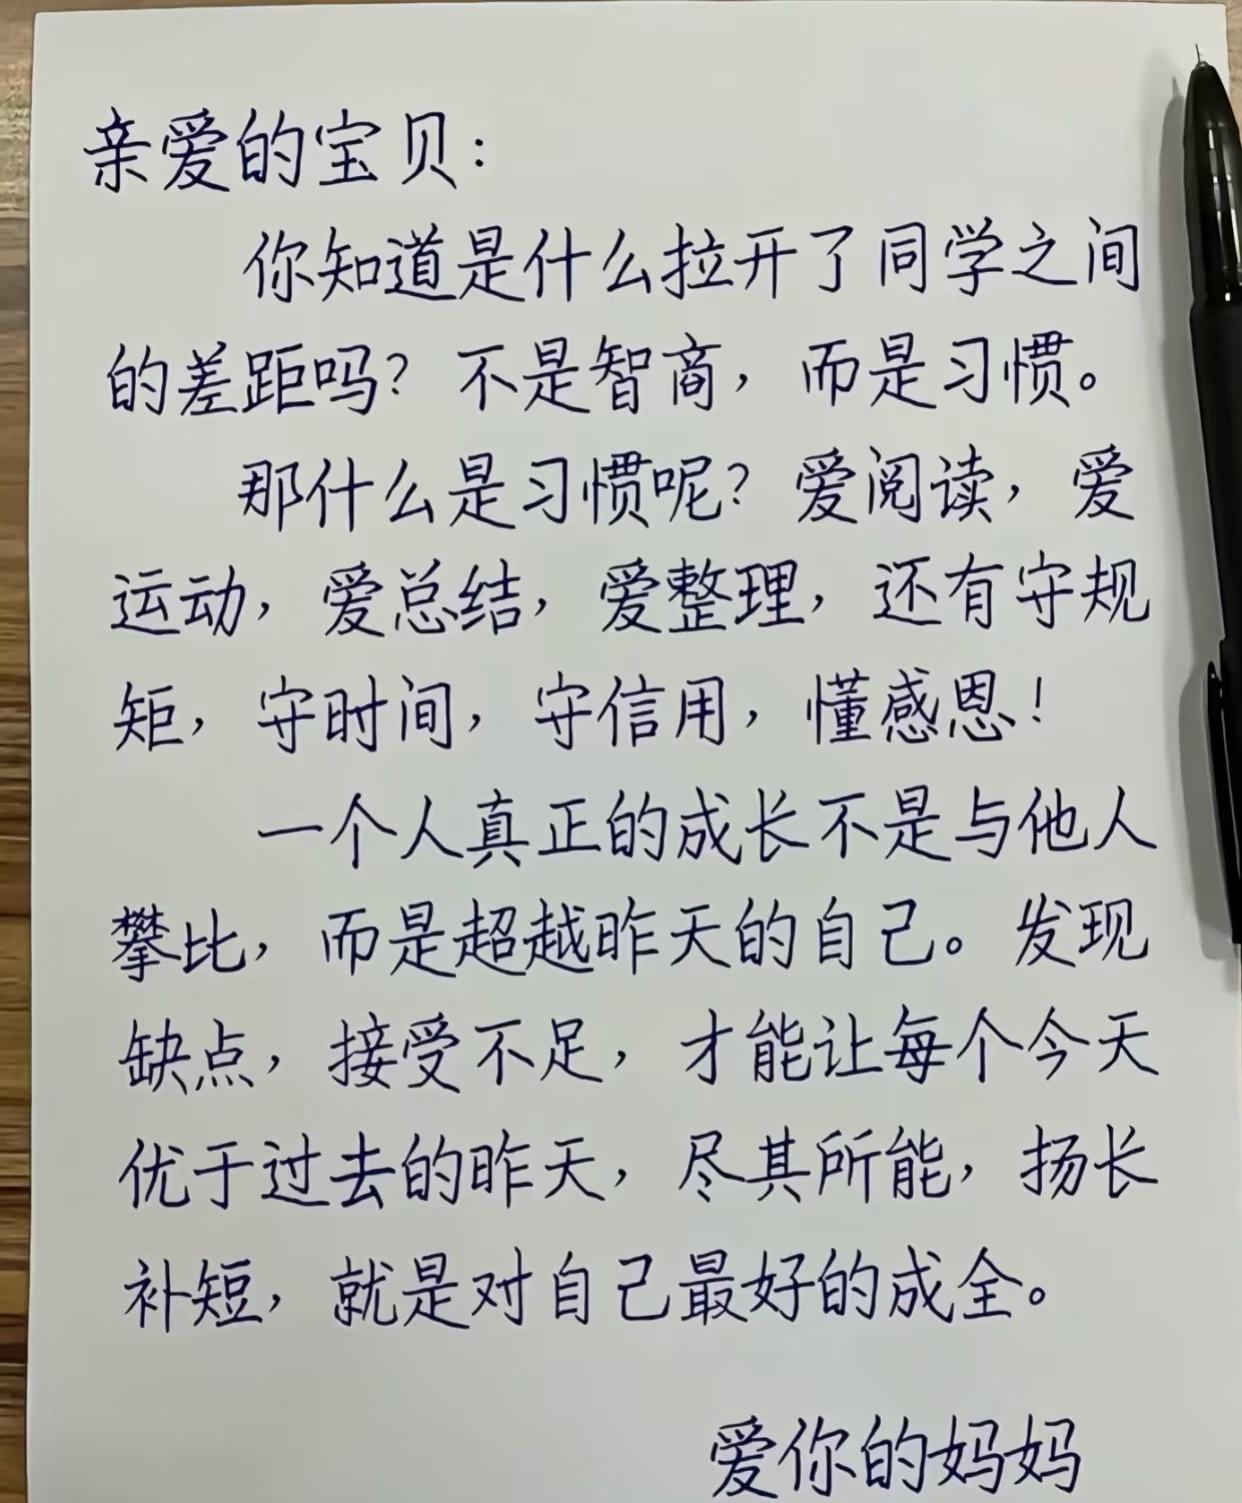 亲爱的宝贝：
你知道是什么拉开了同学之间
的差距吗？不是智商，而是习惯。
那什么是习惯呢？爱阅读，爱
运动，爱总结，爱整理，还有守规
矩，守时间，守信用，懂感恩！
一个人真正的成长不是与他人
攀比，而是超越昨天的自己。发现
缺点，接受不足，才能让每个今天
优于过去的昨天，尽其所能，扬长
补短，就是对自己最好的成全。
爱你的妈妈